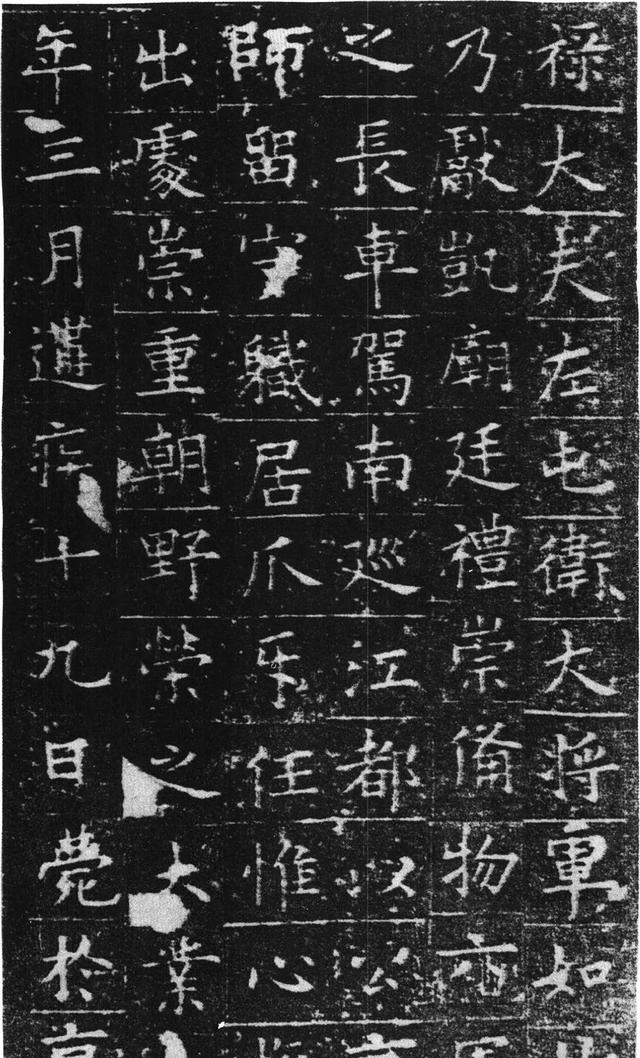 祿大夫左屯衛大將軍如
乃獻凱廟廷禮崇備物
之長車駕南巡江都以公
師留守職居爪牙任惟心
出處崇重朝野榮之大業
年三月遘疾十九日薨於京